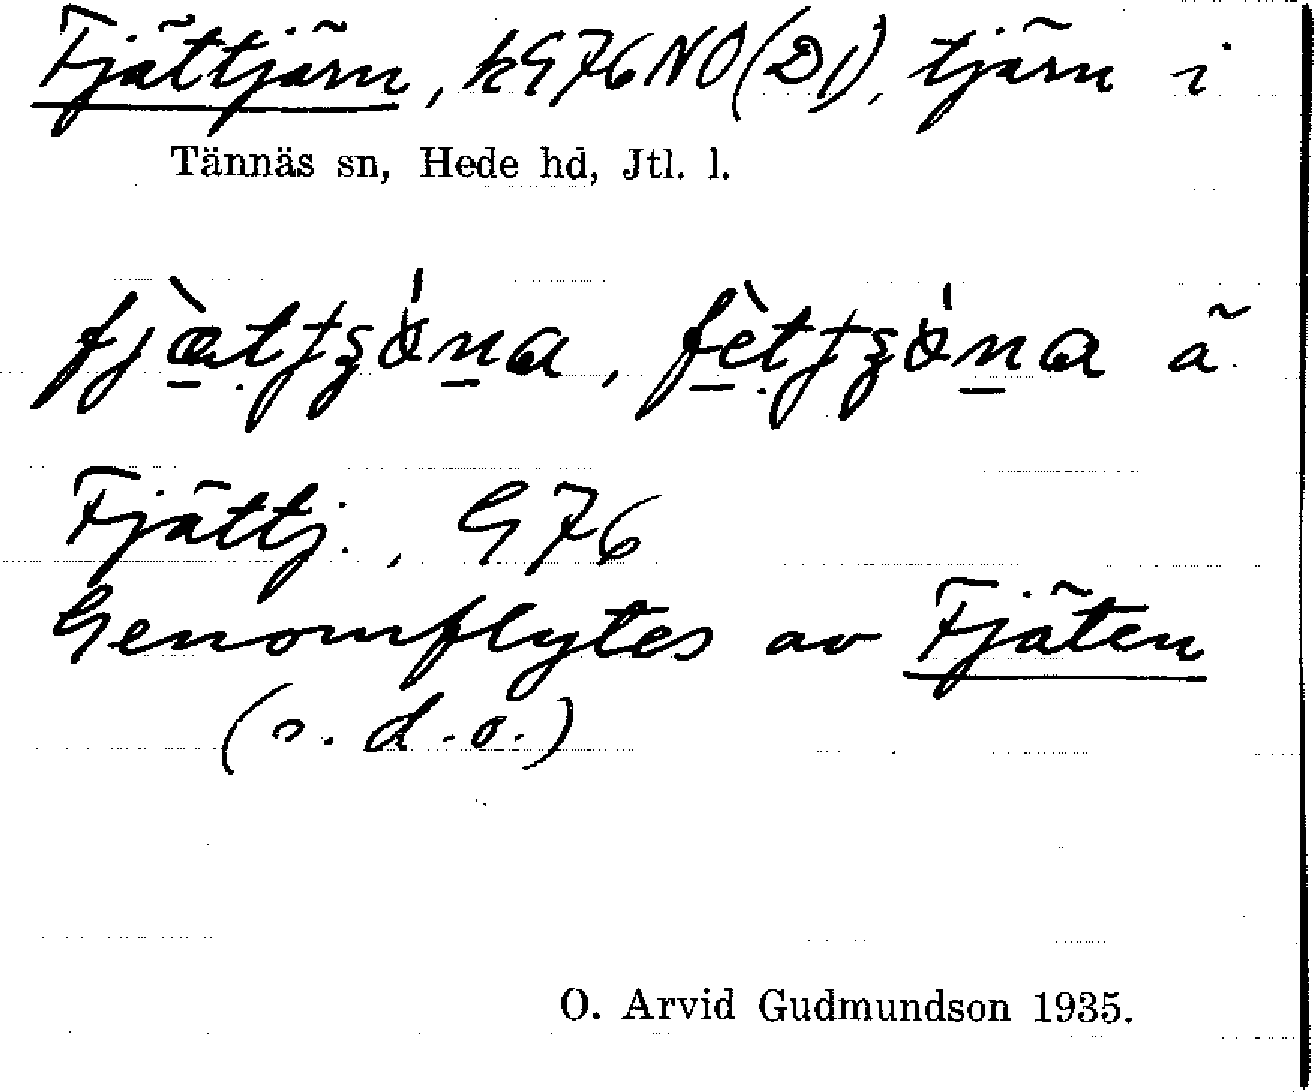 Fjättjärn, kG76NO(D1), tjärn i
Tännäs sn, Hede hd, Jtl. l.
ã
Fjättj., G76
Genomflytes av Fjäten
(s.d.o.)
O. Arvid Gudmundson 1935.